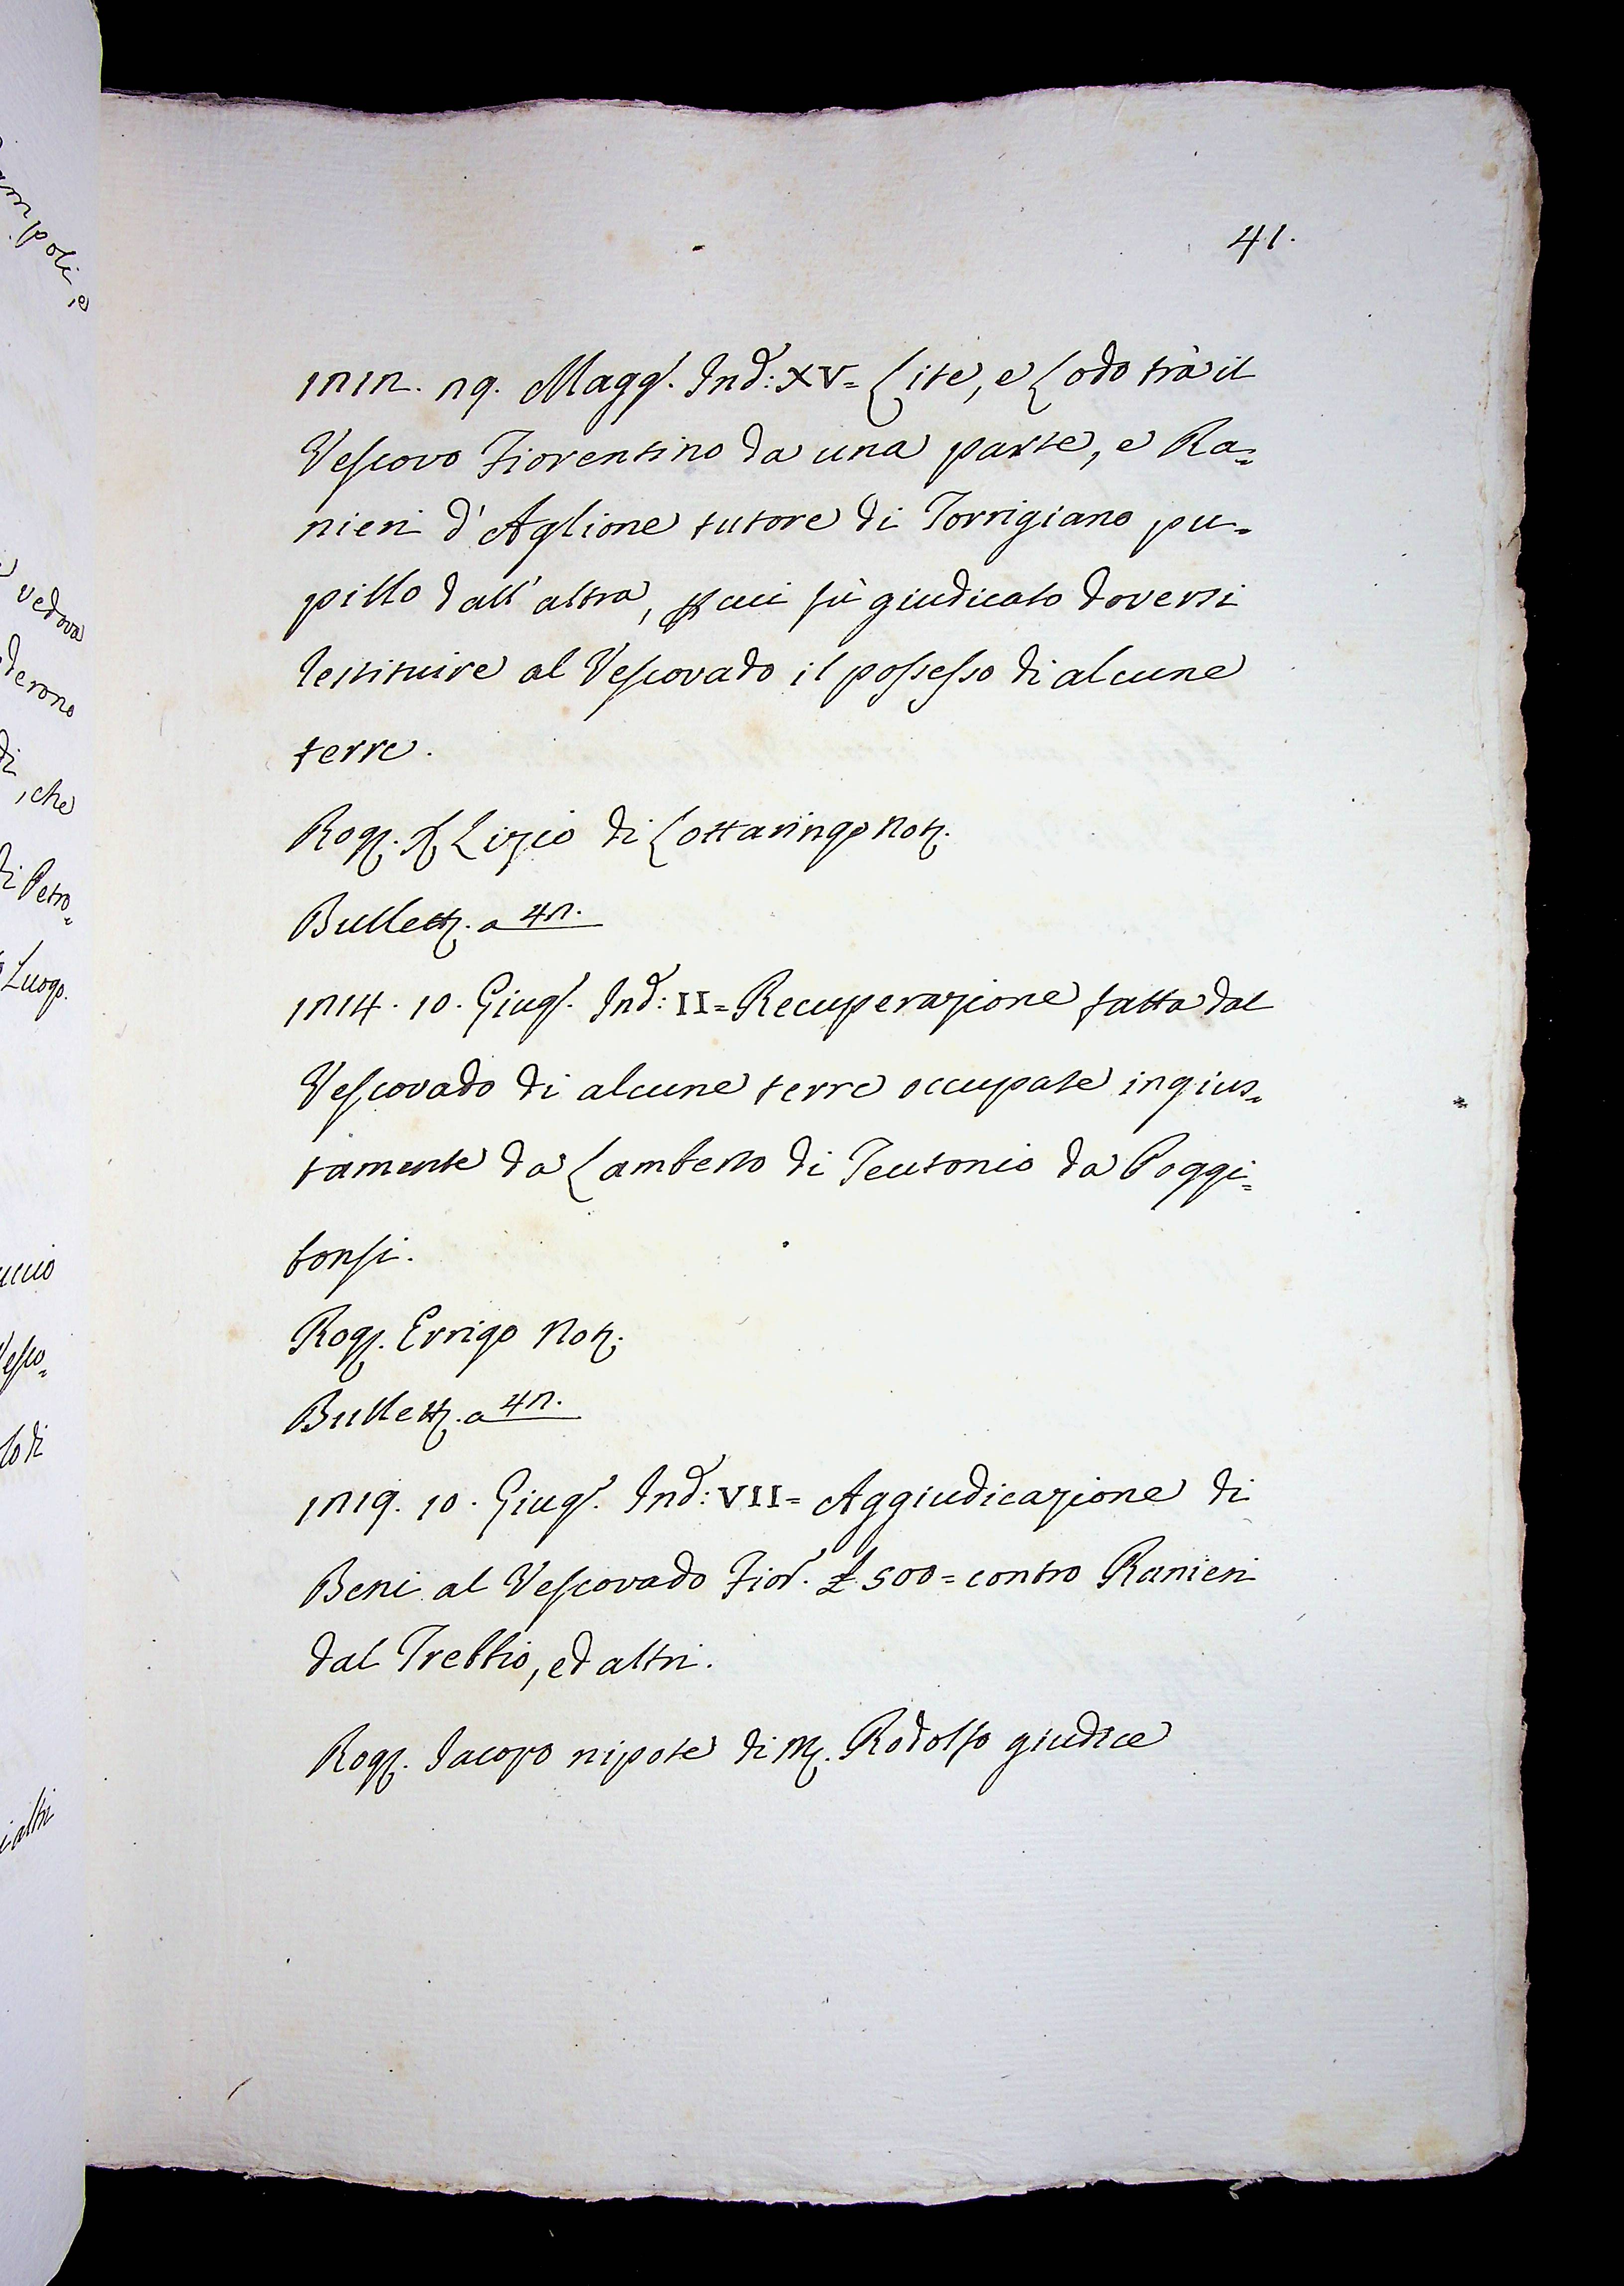 41.
1212. 29. Magg.º Ind: XV= Lite, e Lodo trà il
Vescovo Fiorentino da una parte, e Ra=
nieri d'Aglione tutore di Torrigiano pu=
pillo dall'altra, p cui fù giudicato doversi
restituire al Vescovado il possesso di alcune
terre.
Rog. Lizio di Lottaringo Not.
Bullett. a 42.
1214. 10. Giug.º Ind: II= Recuperazione fatta dal
Vescovado di alcune terre occupate ingius=
tamente da Lamberto di Teutonio da Poggi=
bonsi.
Rog. Errigo Not.
Bullett. a 42.
1219. 10. Giug.º Ind: VII= Aggiudicazione di
Beni al Vescovado Fior.º £ 500= contro Ranieri
dal Trebbio, ed altri.
Rog. Jacopo nipote di M. Rodolfo giudice
vedova
derono
di, che
di Petro=
Luogo.